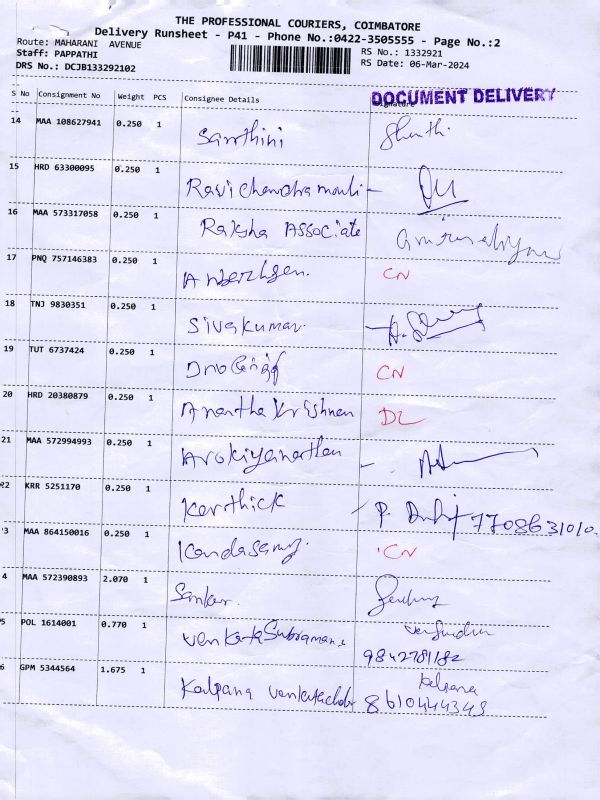 THE PROFESSIONAL COURIERS, COIMBATORE
Delivery Runsheet - P41 - Phone No.:0422-3505555 - Page No.:2
Route: MAHARANI AVENUE RS No.: 1332921
Staff: PAPPATHI RS Date: 06-Mar-2024
DRS No.: DCJB133292102
S No Consignment No Weight PCS Consignee Details Signature
DOCUMENT DELIVERY
14 MAA 108627941 0.250 1 Santhini Shanthi
15 HRD 63300095 0.250 1 Ravi Chandra mouli
16 MAA 573317058 0.250 1 Raksha Associate
17 PNQ 757146383 0.250 1 CN
18 TNJ 9830351 0.250 1 Sivakumar
19 TUT 6737424 0.250 1 CN
20 HRD 20380879 0.250 1 Anantha Krishnan DL
21 MAA 572994993 0.250 1 Arokiyanathan
22 KRR 5251170 0.250 1 Karthick 7708631010
3 MAA 864150016 0.250 1 Kandasamy CN
4 MAA 572390893 2.070 1 Sankar
5 POL 1614001 0.770 1 Venkata Subramani
9842781182
6 GPM 5344564 1.675 1 Kalpana Venkatachala Kalpana
8610444343